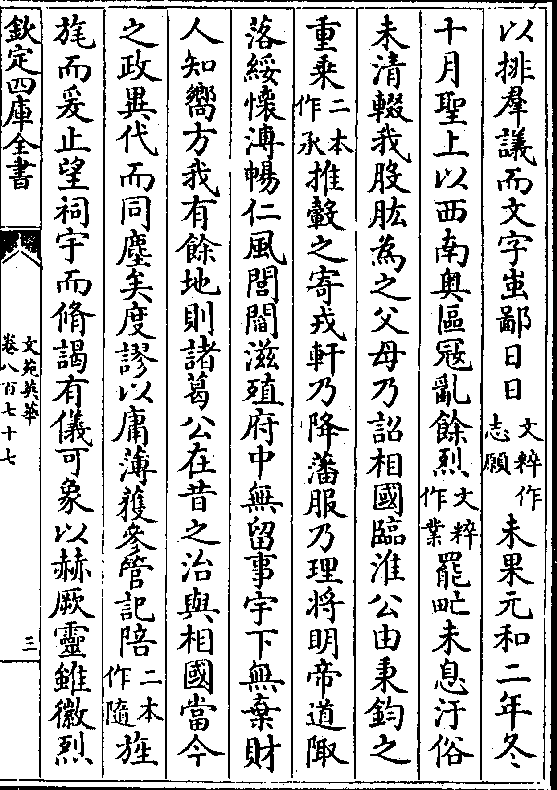 以排羣議而文字蚩鄙日日文粹作志願未果元和二年冬
十月聖上以西南奥區冦亂餘烈文粹作業罷甿未息汙俗
未清輟我股肱為之父母乃詔相國臨淮公由秉鈞之
重乘二本作承推轂之寄戎軒乃降藩服乃理將明帝道陬
落綏懷溥暢仁風閭閻滋殖府中無留事宇下無棄財
人知嚮方我有餘地則諸葛公在昔之治與相國當今
之政異代而同塵矣度謬以庸薄獲參管記陪二本作隨旌
旄而爰止望祠宇而脩謁有儀可象以赫厥靈雖徽烈
欽定四庫全書
文苑英華
卷八百七十七
三